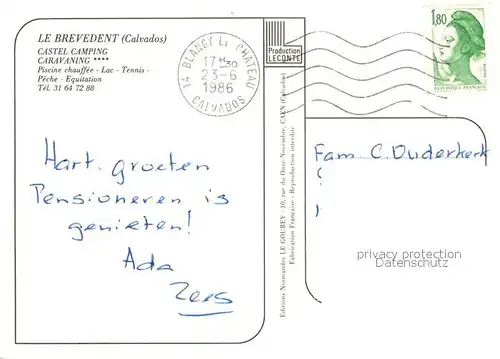 LE BREVEDENT (Calvados)
CASTEL CAMPING
CARAVANING ****
Piscine chauffée - Lac - Tennis -
Pêche - Equitation
Tél. 31 64 72 88
14 BLANGY LE CHATEAU
17H30
23-6
1986
CALVADOS
Production
LECONTE
1,80
REPUBLIQUE FRANCAISE
Hart. groeten
Pensioneren is
genieten!
Ada
Editions Normandes LE GOUBEY - 10, rue du Onze-Novembre, CAEN (Calvados)
Fabrication Française - Reproduction interdite
Fam. C. Ouderkerk
privacy protection
Datenschutz